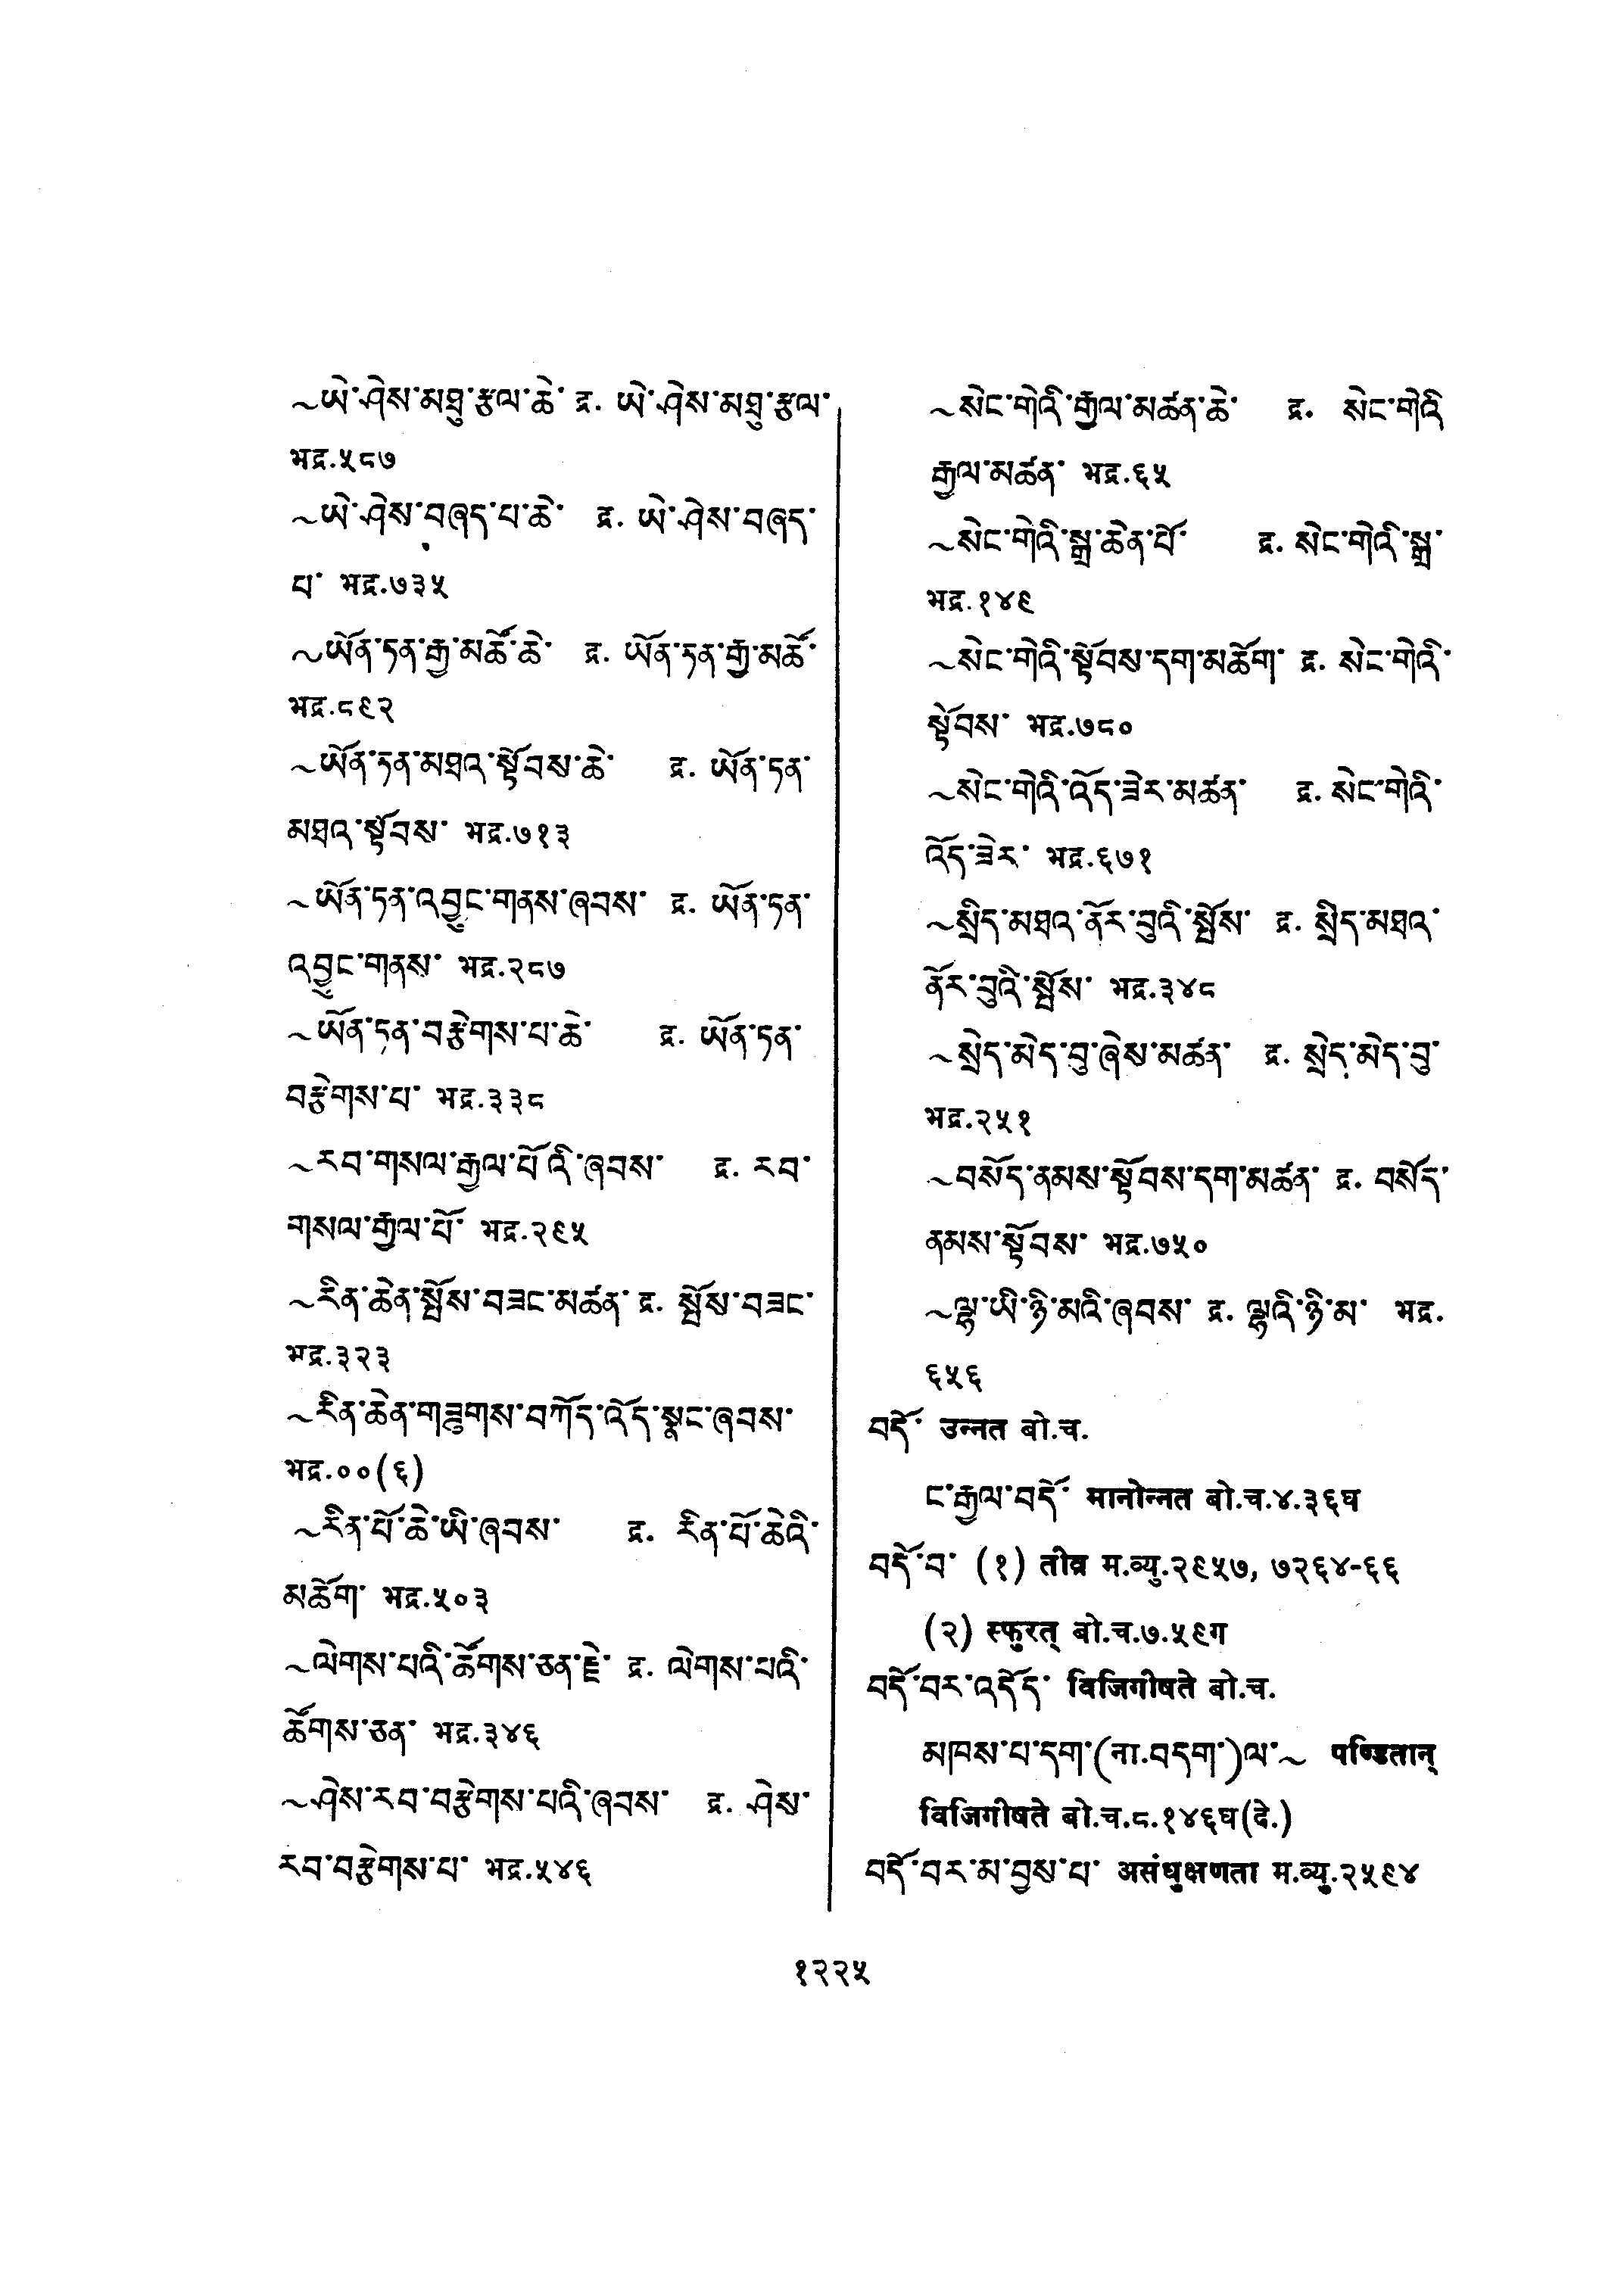 ~ཡེ་ཤེས་མཐུ་རྩལ་ཆེ་ द्र. ཡེ་ཤེས་མཐུ་རྩལ་
भद्र.५८७
~ཡེ་ཤེས་བཞད་པ་ཆེ་ द्र. ཡེ་ཤེས་བཞད་
པ་ भद्र.७३५
~ཡོན་ཏན་རྒྱ་མཚོ་ཆེ་ द्र. ཡོན་ཏན་རྒྱ་མཚོ་
भद्र.८९२
~ཡོན་ཏན་མཐའ་སྟོབས་ཆེ་ द्र. ཡོན་ཏན་
མཐའ་སྟོབས་ भद्र.७१३
~ཡོན་ཏན་འབྱུང་གནས་ཞབས་ द्र. ཡོན་ཏན་
འབྱུང་གནས་ भद्र.२८७
~ཡོན་ཏན་བརྩེགས་པ་ཆེ་ द्र. ཡོན་ཏན་
བརྩེགས་པ་ भद्र.३३८
~རབ་གསལ་རྒྱལ་པོའི་ཞབས་ द्र. རབ་
གསལ་རྒྱལ་པོ་ भद्र.२९५
~རིན་ཆེན་སྤོས་བཟང་མཚན་ द्र. སྤོས་བཟང་
भद्र.३२३
~རིན་ཆེན་གཟུགས་བཀོད་འོད་སྣང་ཞབས་
भद्र.००(६)
~རིན་པོ་ཆེ་ཡི་ཞབས་ द्र. རིན་པོ་ཆེའི་
མཆོག་ भद्र.५०३
~ལེགས་པའི་ཚོགས་ཅན་རྗེ་ द्र. ལེགས་པའི་
ཚོགས་ཅན་ भद्र.३४६
~ཤེས་རབ་བརྩེགས་པའི་ཞབས་ द्र. ཤེས་
རབ་བརྩེགས་པ་ भद्र.५४६
~སེང་གེའི་རྒྱལ་མཚན་ཆེ་ द्र. སེང་གེའི
རྒྱལ་མཚན་ भद्र.६५
~སེང་གེའི་སྒྲ་ཆེན་པོ་ द्र. སེང་གེའི་སྒྲ་
भद्र.१४९
~སེང་གེའི་སྟོབས་དག་མཆོག་ द्र. སེང་གེའི་
སྟོབས་ भद्र.७८०
~སེང་གེའི་འོད་ཟེར་མཚན་ द्र. སེང་གེའི་
འོད་ཟེར་ भद्र.६७१
~སྲིད་མཐའ་ནོར་བུའི་སྤོས་ द्र. སྲིད་མཐའ་
ནོར་བུའི་སྤོས་ भद्र.३४८
~སྲེད་མེད་བུ་ཞེས་མཚན་ द्र. སྲེད་མེད་བུ་
भद्र.२५१
~བསོད་ནམས་སྟོབས་དག་མཚན་ द्र. བསོད་
ནམས་སྟོབས་ भद्र.७५०
~ལྷ་ཡི་ཉི་མའི་ཞབས་ द्र. ལྷའི་ཉི་མ་ भद्र.
६५६
བདོ་ उन्नत बो.च.
ང་རྒྱལ་བདོ་ मानोन्नत बो.च.४.३६घ
བདོ་བ་ (१) तीव्र म.व्यु.२९५७, ७२६४-६६
(२) स्फुरत् बो.च.७.५९ग
བདོ་བར་འདོད་ विजिगीषते बो.च.
མཁས་པ་དག་(ना.བདག་)ལ་~ पण्डितान्
विजिगीषते बो.च.८.१४६घ(दे.)
བདོ་བར་མ་བྱས་པ་ असंधुक्षणता म.व्यु.२५९४
१२२५